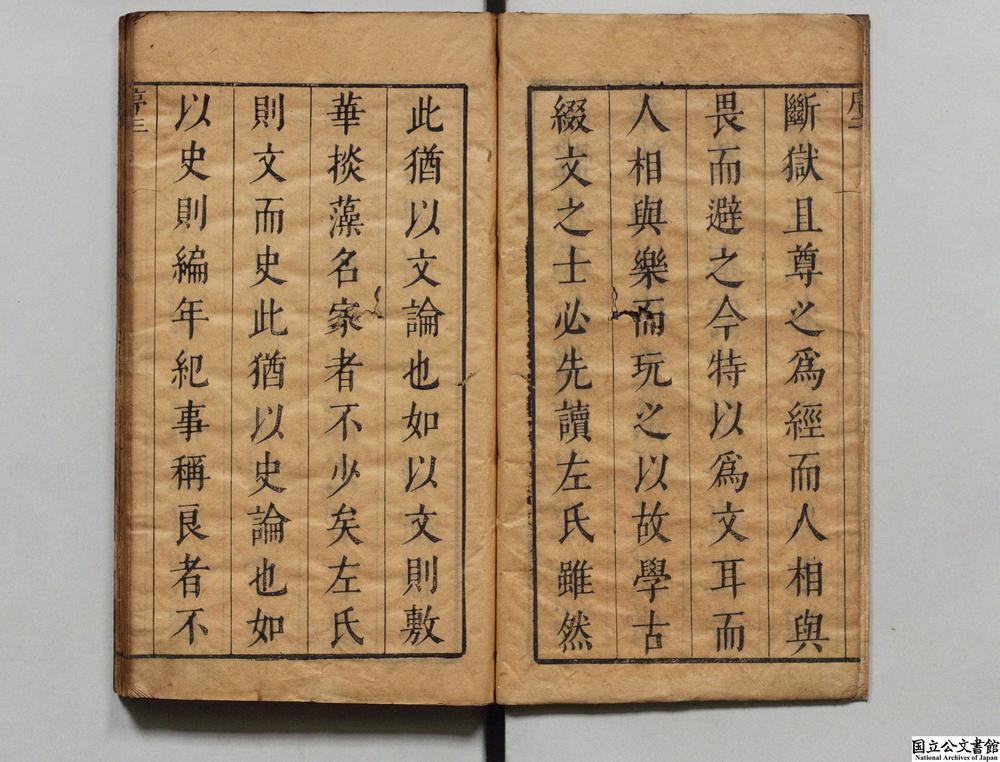 斷獄且尊之爲經而人相與
畏而避之今特以爲文耳而
人相與樂而玩之以故學古
綴文之士必先讀左氏雖然
此猶以文論也如以文則敷
華掞藻名家者不少矣左氏
則文而史此猶以史論也如
以史則編年紀事稱良者不
序三
国立公文書館
National Archives of Japan